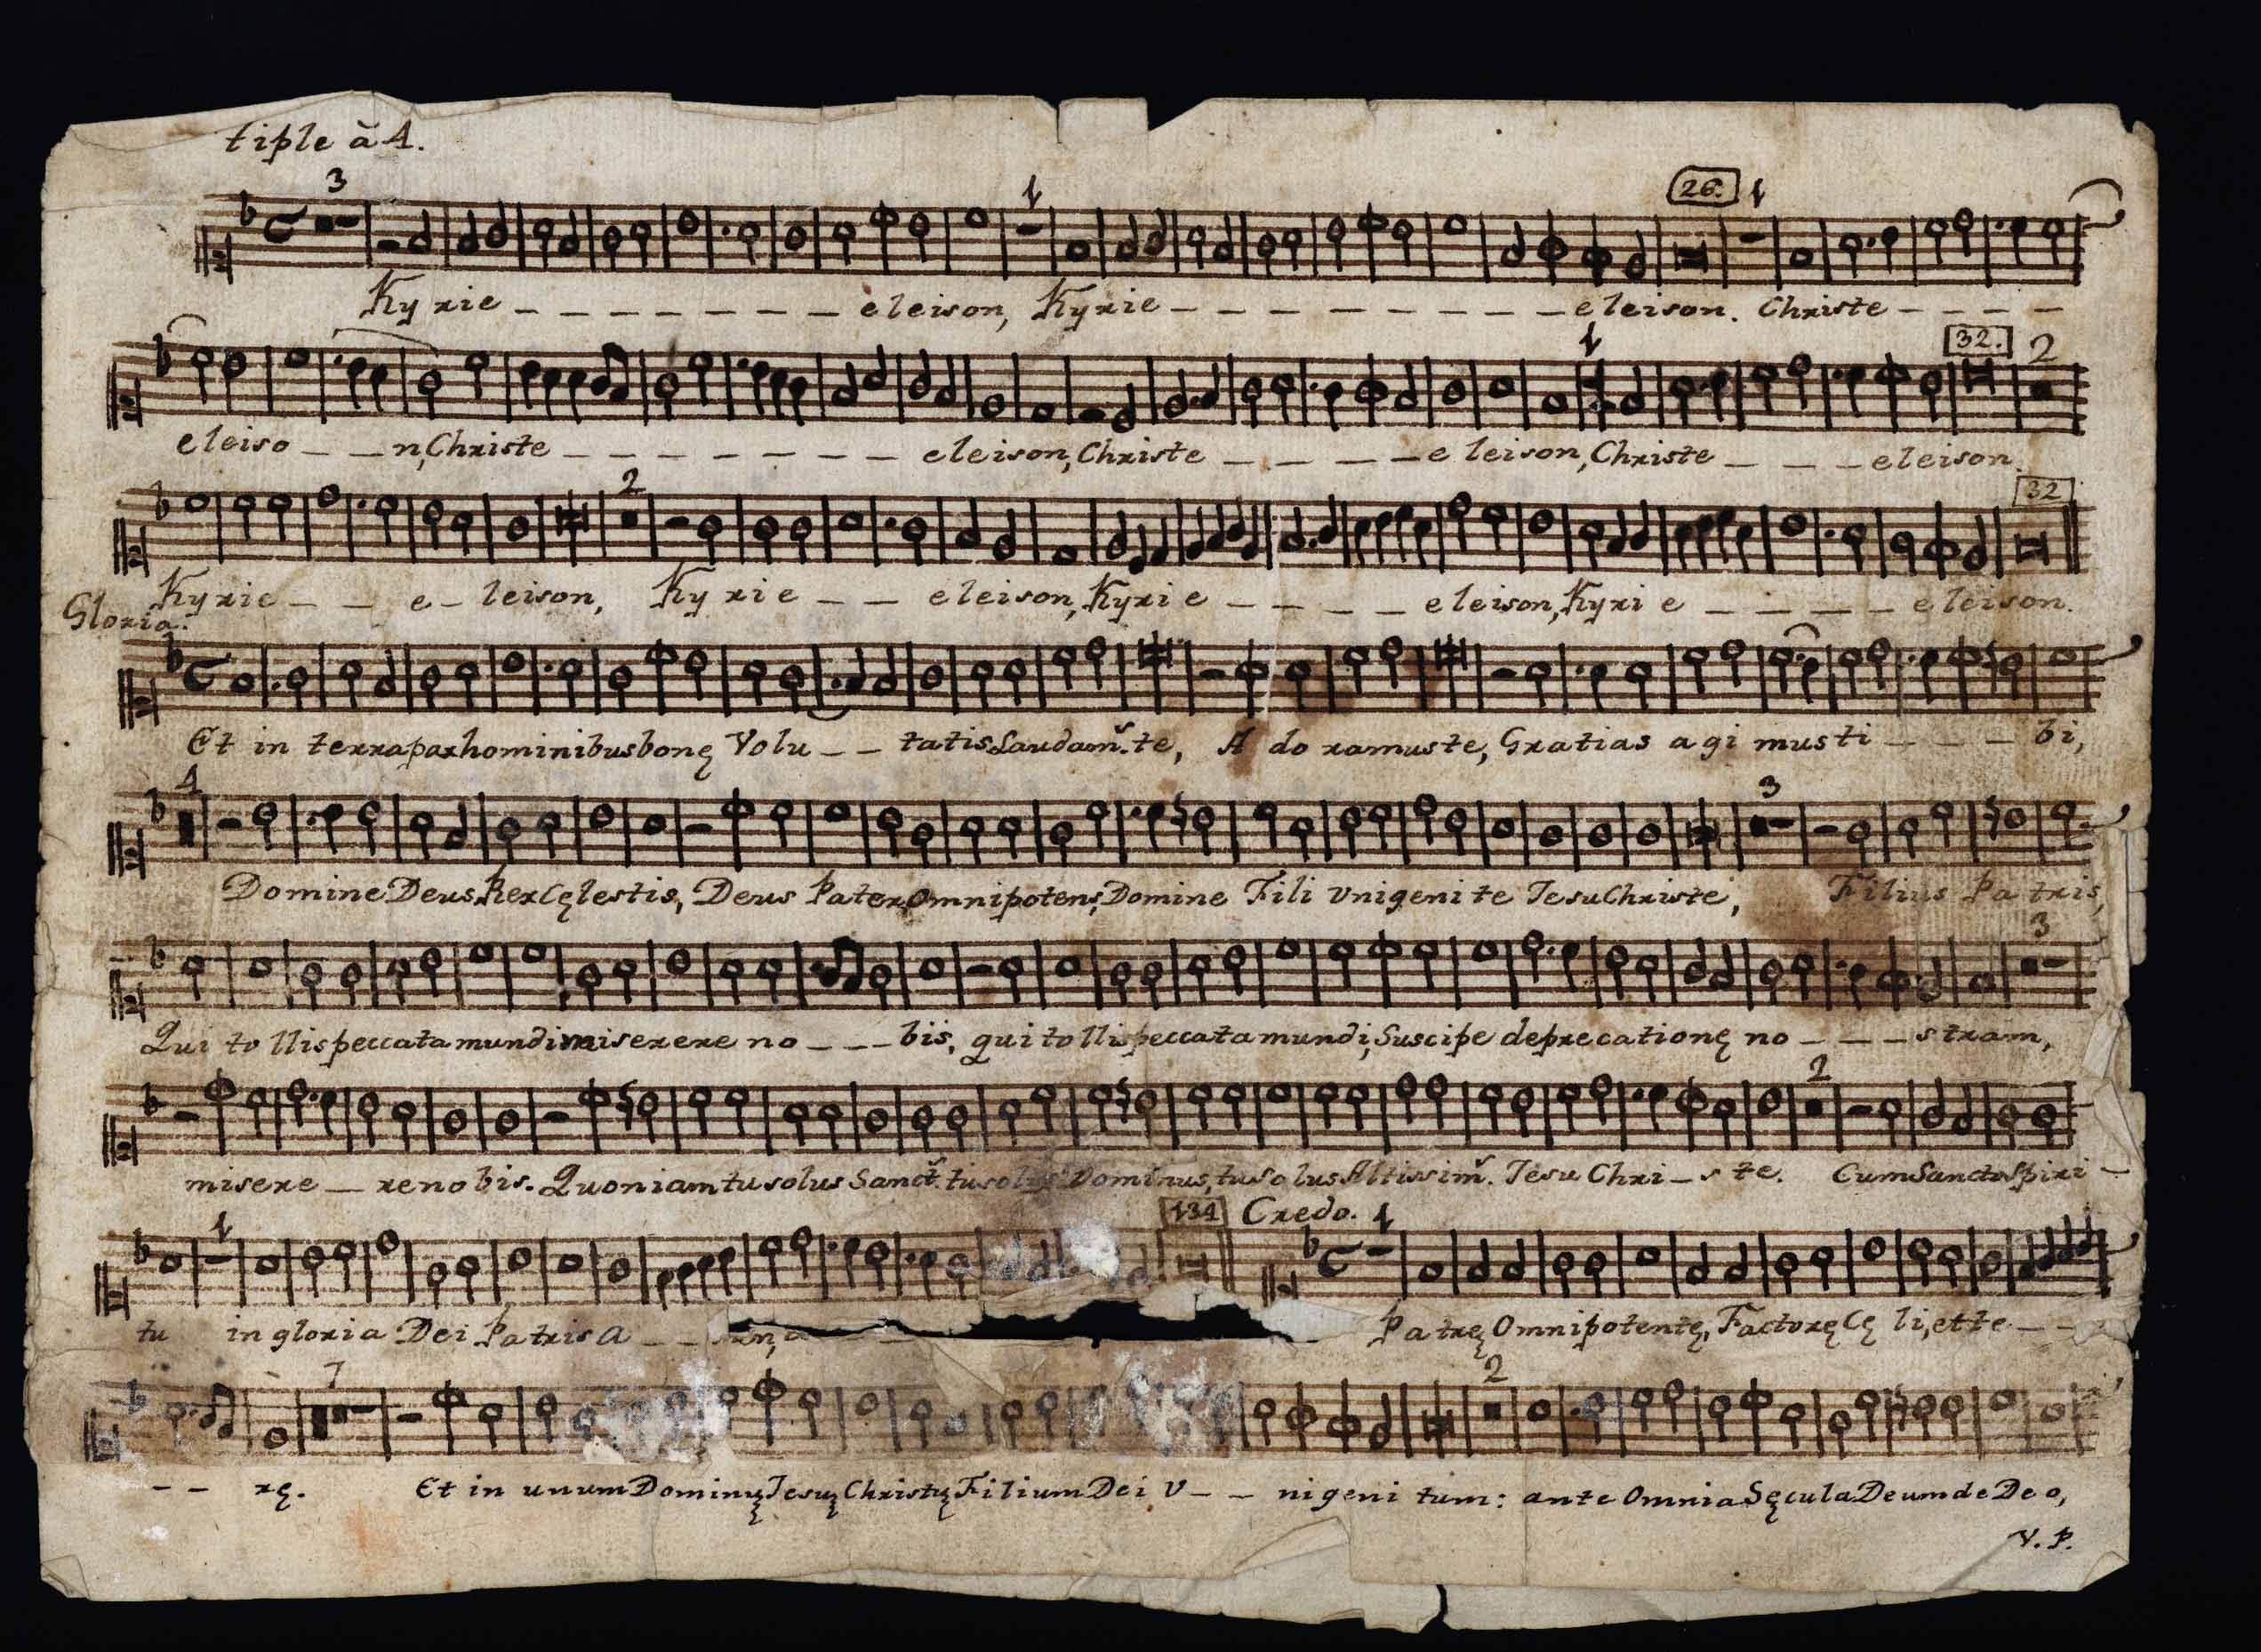 tiple à 4.
3 1 26. 1
Kyrie _ _ _ _ _ _ _ eleison, Kyrie _ _ _ _ _ _ _ _ _ eleison. Christe _ _ _ _
1 32. 2
eleiso _ _ n, Christe _ _ _ _ _ _ _ _ eleison, Christe _ _ _ _ e leison, Christe _ _ _ eleison.
2 32
Kyrie _ _ e _ leison, Kyrie _ _ eleison, Kyrie _ _ _ _ eleison, Kyrie _ _ _ _ eleison.
Gloria.
Et in terra pax hominibus bonę Volu _ _ tatis Laudams. te, A do ramus te, Gratias agi mus ti _ _ _ bi,
4 3
Domine Deus Rex Cęlestis, Deus Pater Omnipotens, Domine Fili Vnigenite Iesu Christe, Filius Patris,
3
Qui tollis peccata mundi miserere no _ _ _ bis, qui tollis peccata mundi, Suscipe deprecationę no _ _ _ stram,
2
misere _ re nobis. Quoniam tu solus Sancts. tu solus Dominus, tu solus Altissims. Iesu Chri _ s te. Cum Sancto Spiri _
1 134 Credo. 1
tu in gloria Dei Patris A _ _ Patrę Omnipotentę, Factorę Cę li, et te _ _
7 2
_ _ rę. Et in unum Dominų Iesų Christų Filium Dei V _ _ nigeni tum: ante Omnia Sęcula Deum de Deo,
V. P.